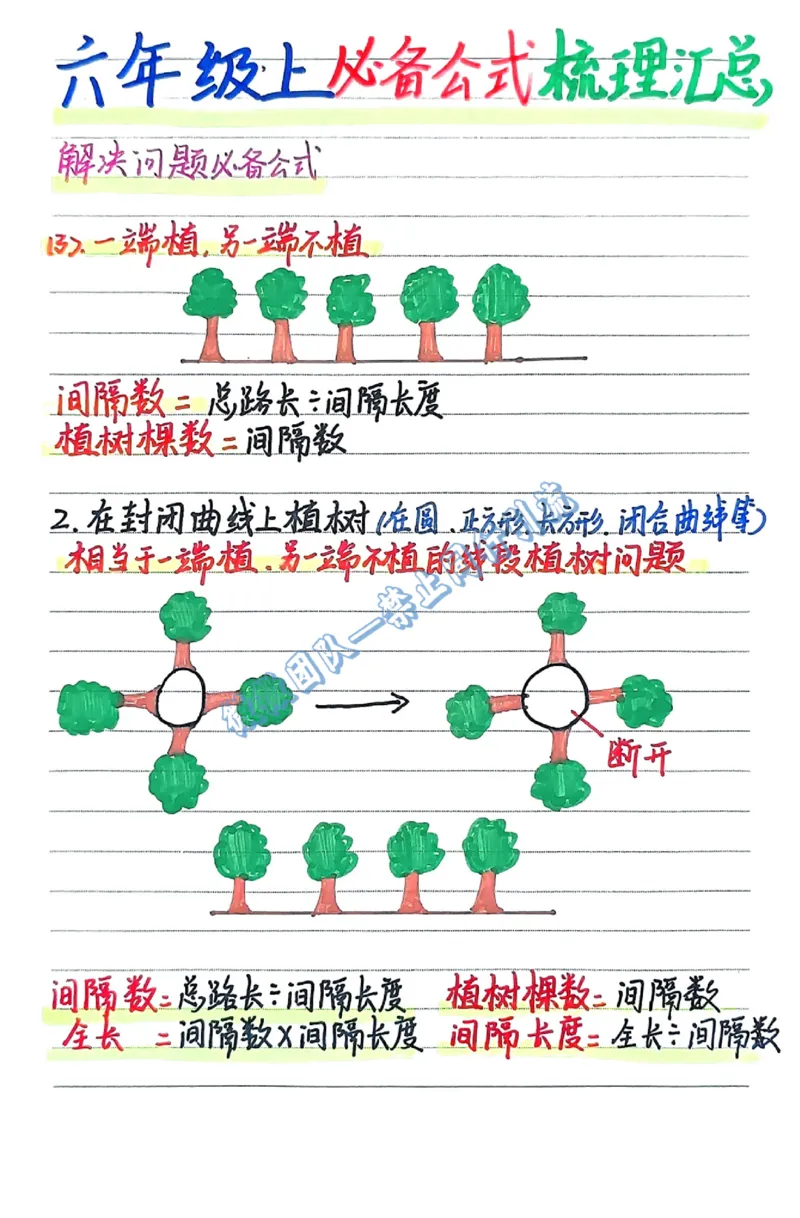 六年级上必备公式梳理汇总
解决问题必备公式
(3).一端植,另一端不植
间隔数=总路长÷间隔长度
植树棵数=间隔数
2.在封闭曲线上植树(在圆、正方形、长方形、闭合曲线等)
相当于一端植、另一端不植的线段植树问题
断开
间隔数=总路长÷间隔长度 植树棵数=间隔数
全长 =间隔数×间隔长度 间隔长度=全长÷间隔数